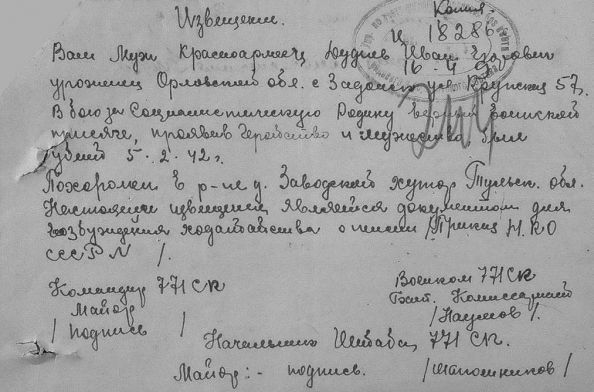 Копия.
Извещение.
И 18286
Ваш муж красноармеец Дуднев Иван
16-4
уроженец Орловской обл. с Задонск ул Крупской 57,
В бою за Социалистическую Родину верный воинской
присяге, проявив геройство и мужество был
убит 5.2.42г.
Похоронен в р-не д. Заводской хутор Тульск. обл.
Настоящее извещение является документом для
возбуждения ходатайства о пенсии /Приказ Н.КО
СССР N /.
Командир 771 СК
Майор
/подпись /
Военком 771 СК
Бат. Комиссар
/Наумов/.
Начальник Штаба 771 СК.
Майор:- подпись. /Шапошников/